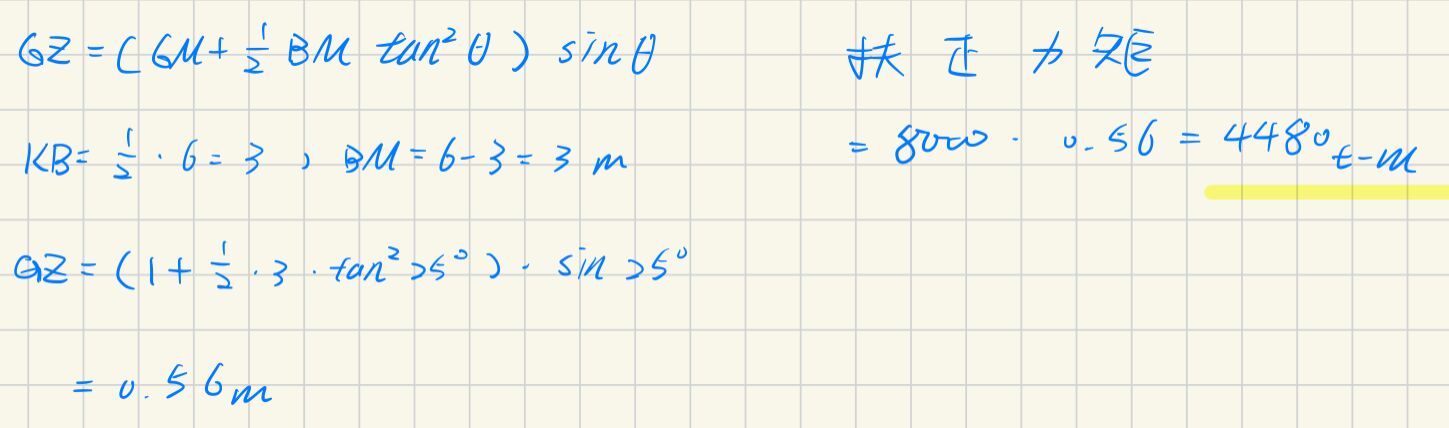 GZ = (GM + 1/2 BM tan² θ) sin θ
KB = 1/2 · 6 = 3 , BM = 6 - 3 = 3 m
GZ = (1 + 1/2 · 3 · tan² 25°) · sin 25°
= 0.56 m
扶正力矩
= 8000 · 0.56 = 4480 t-m